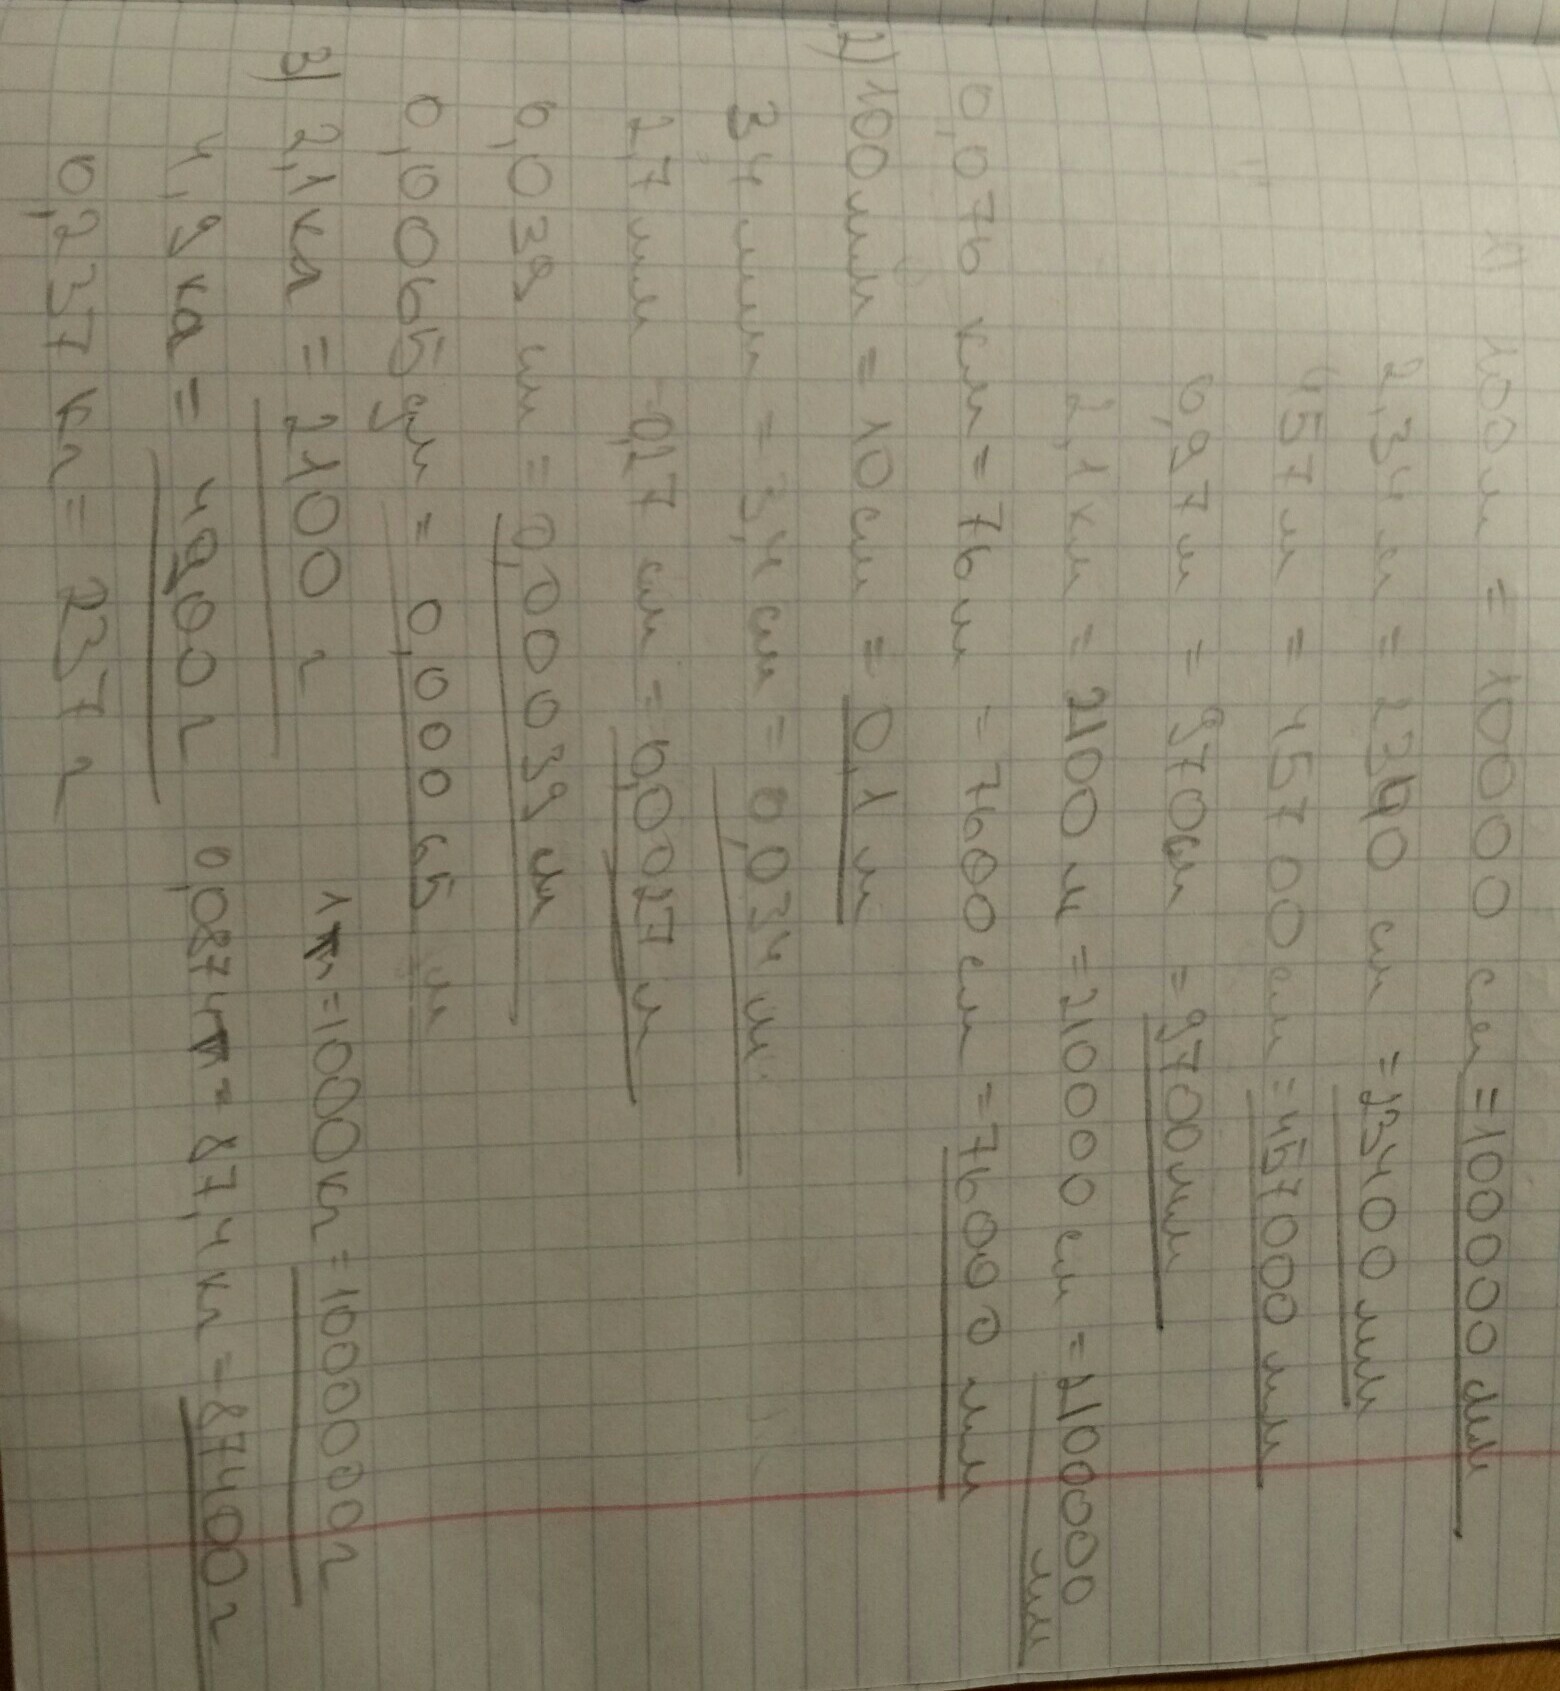 1) 100 м = 10000 см = 100000 мм
2,34 м = 2340 см = 23400 мм
457 м = 45700 см = 457000 мм
0,97 м = 970 см = 9700 мм
2,1 км = 2100 м = 210000 см = 2100000 мм
0,076 км = 76 м = 7600 см = 76000 мм
2) 100 мм = 10 см = 0,1 м
34 мм = 3,4 см = 0,034 м
2,7 мм = 0,27 см = 0,0027 м
0,039 см = 0,00039 м
0,0065 дм = 0,00065 м
3) 2,1 кг = 2100 г 1 т = 1000 кг = 1000000 г
4,9 кг = 4900 г 0,0874 т = 87,4 кг = 87400 г
0,237 кг = 237 г